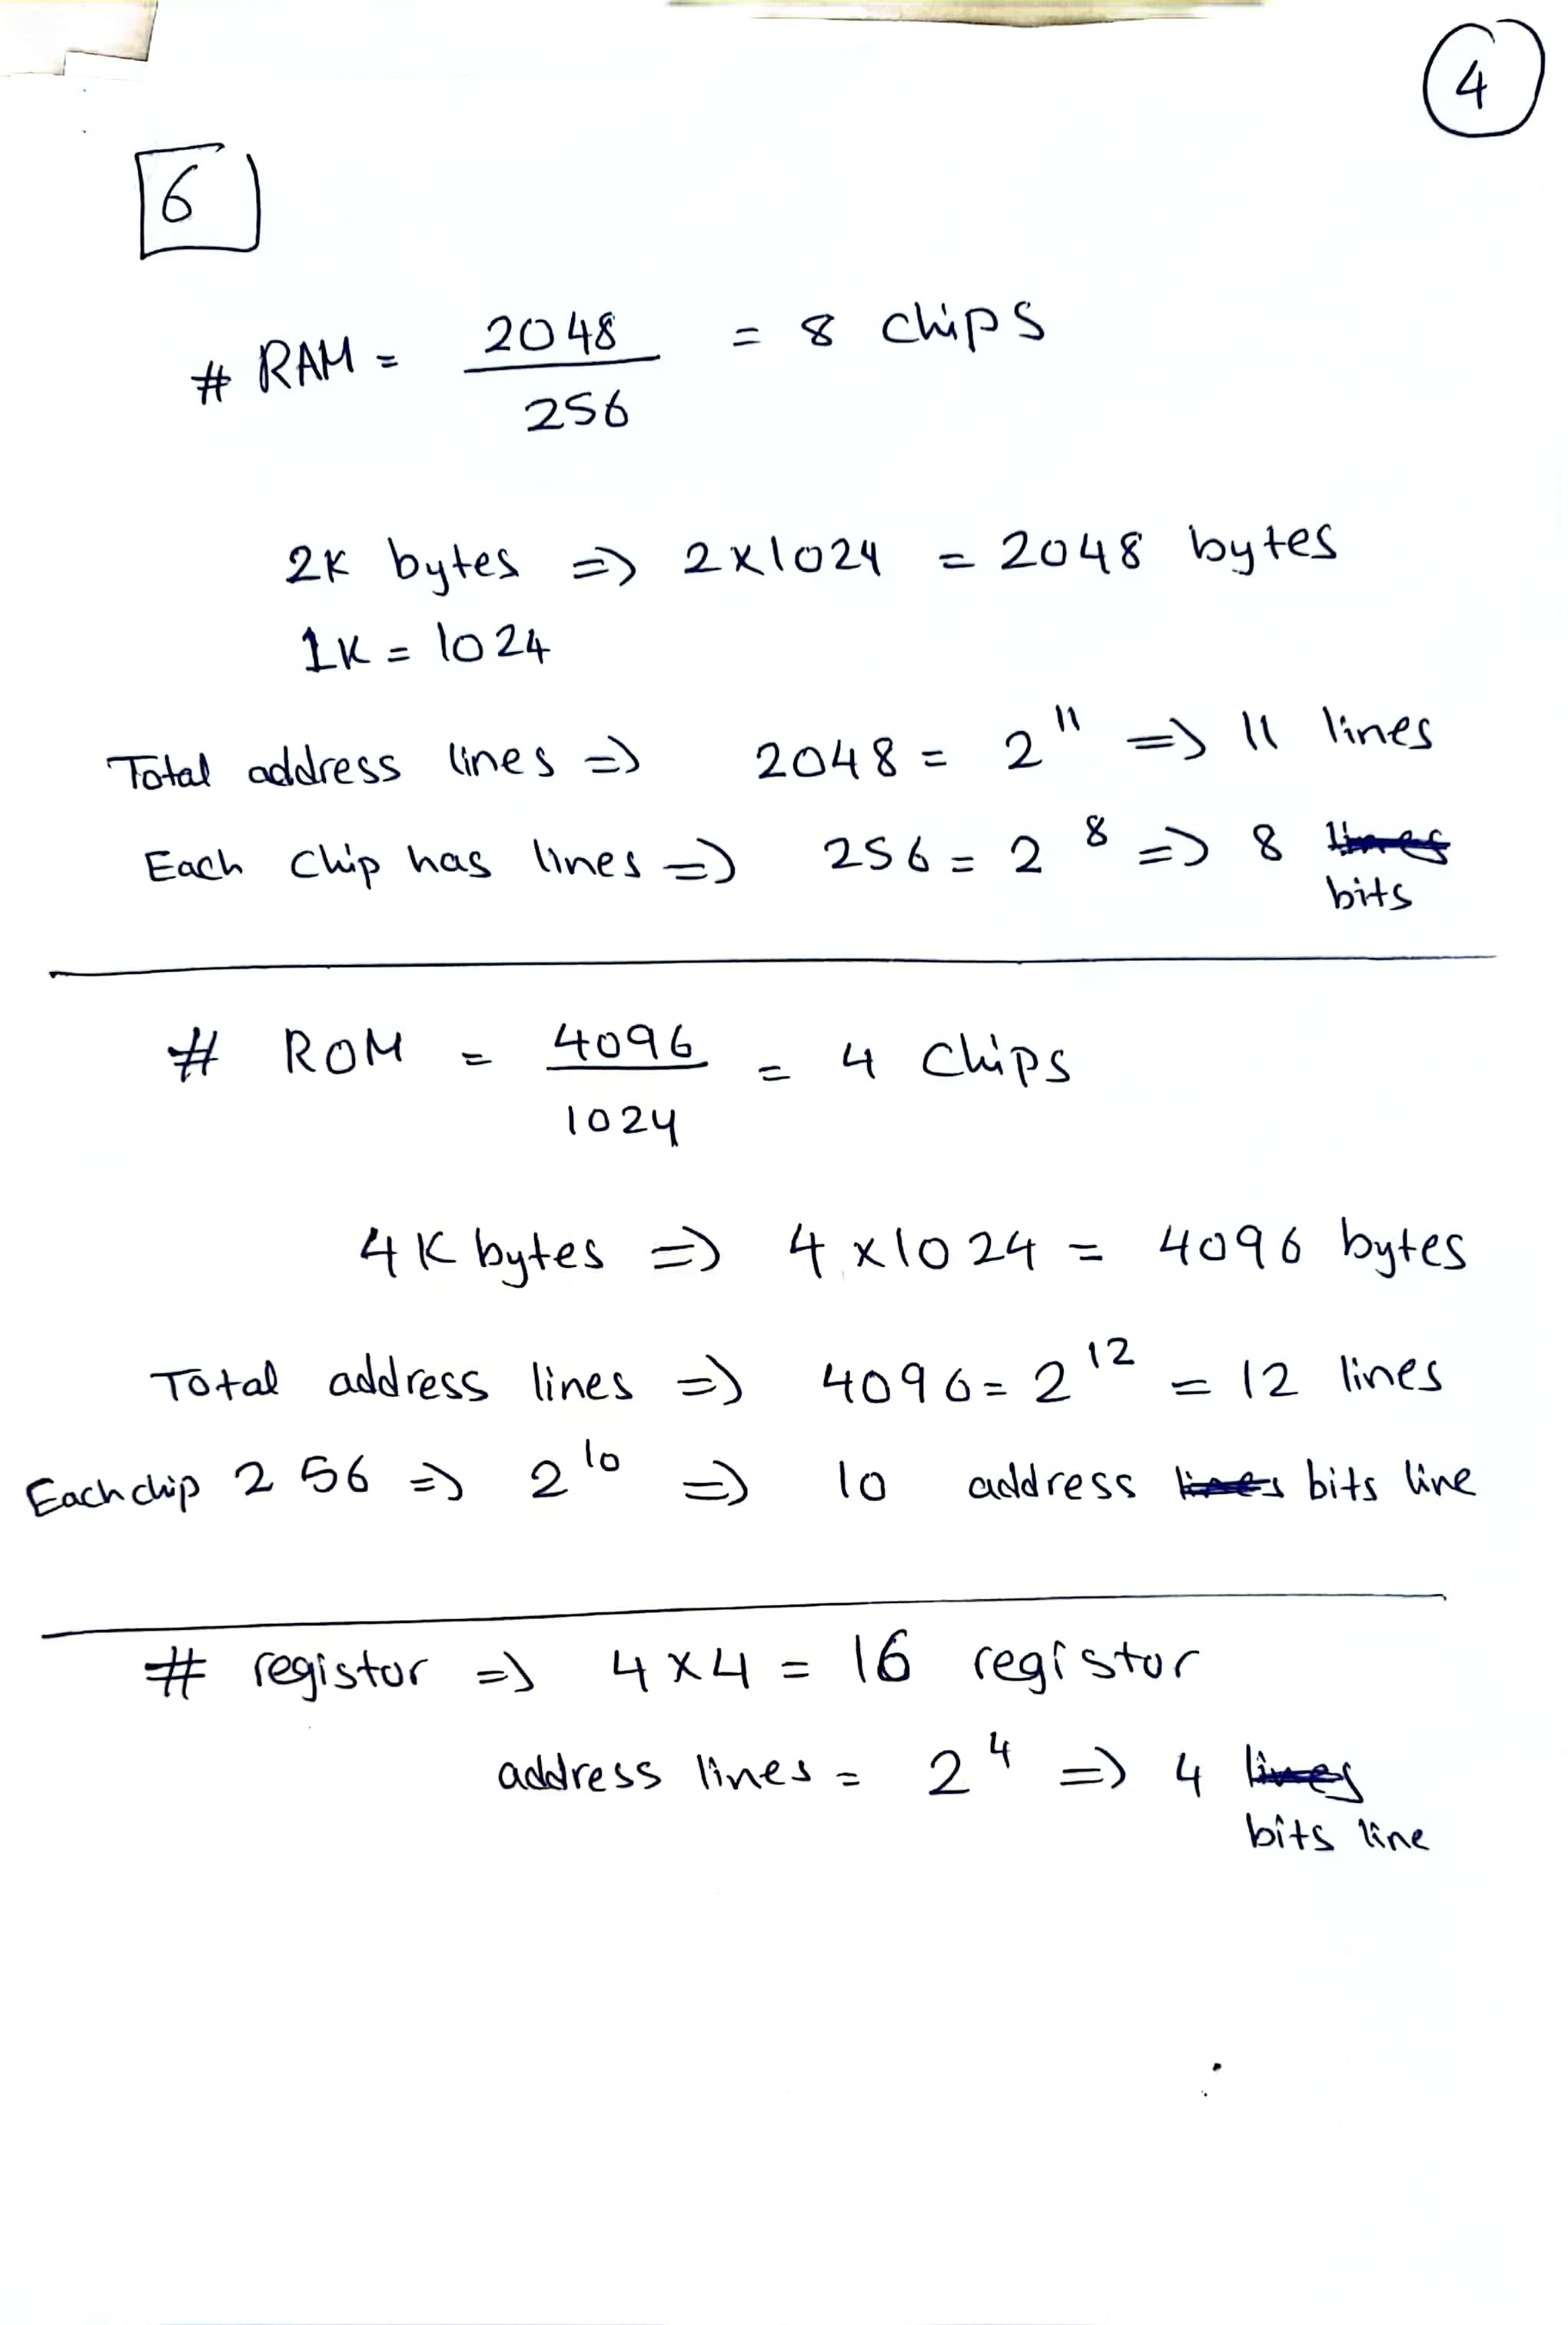 4
6
# RAM = 2048 / 256 = 8 chips
2K bytes => 2x1024 = 2048 bytes
1K = 1024
Total address lines => 2048 = 2^11 => 11 lines
Each chip has lines => 256 = 2^8 => 8 lines
bits
# ROM = 4096 / 1024 = 4 chips
4K bytes => 4x1024 = 4096 bytes
Total address lines => 4096 = 2^12 = 12 lines
Each chip 256 => 2^10 => 10 address lines bits line
# registor => 4x4 = 16 registor
address lines = 2^4 => 4 lines
bits line